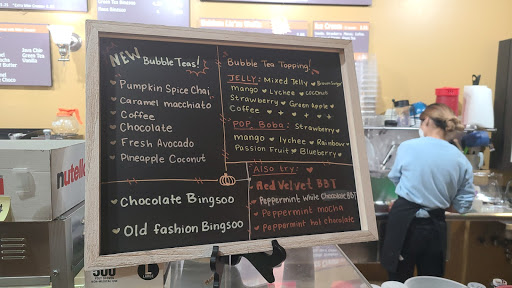 NEW Bubble Teas!
Pumpkin Spice Chai
Caramel macchiato
Coffee
Chocolate
Fresh Avocado
Pineapple Coconut
Chocolate Bingsoo
Old fashion Bingsoo
Bubble Tea Topping!
JELLY: Mixed Jelly
mango Lychee coconut
Strawberry Green Apple
Coffee
POP Boba: Strawberry
mango lychee Rainbow
Passion Fruit Blueberry
Also try:
Red Velvet BBT
Peppermint White Chocolate BBT
Peppermint mocha
Peppermint hot chocolate
nutella
500
L
Java Chip
Green Tea
Vanilla